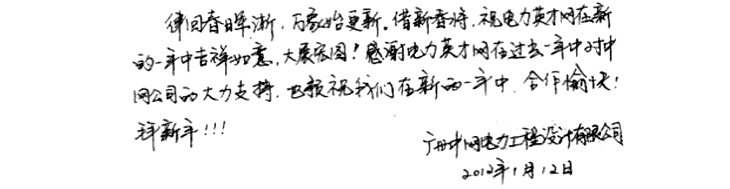 律回春晖渐，万象始更新。借新春将，祝电力英才网在新
的一年中吉祥如意，大展宏图！感谢电力英才网在过去一年中对中
网公司的大力支持，也预祝我们在新的一年中，合作愉快！
拜新年!!!
广州中网电力工程设计有限公司
2012年1月12日